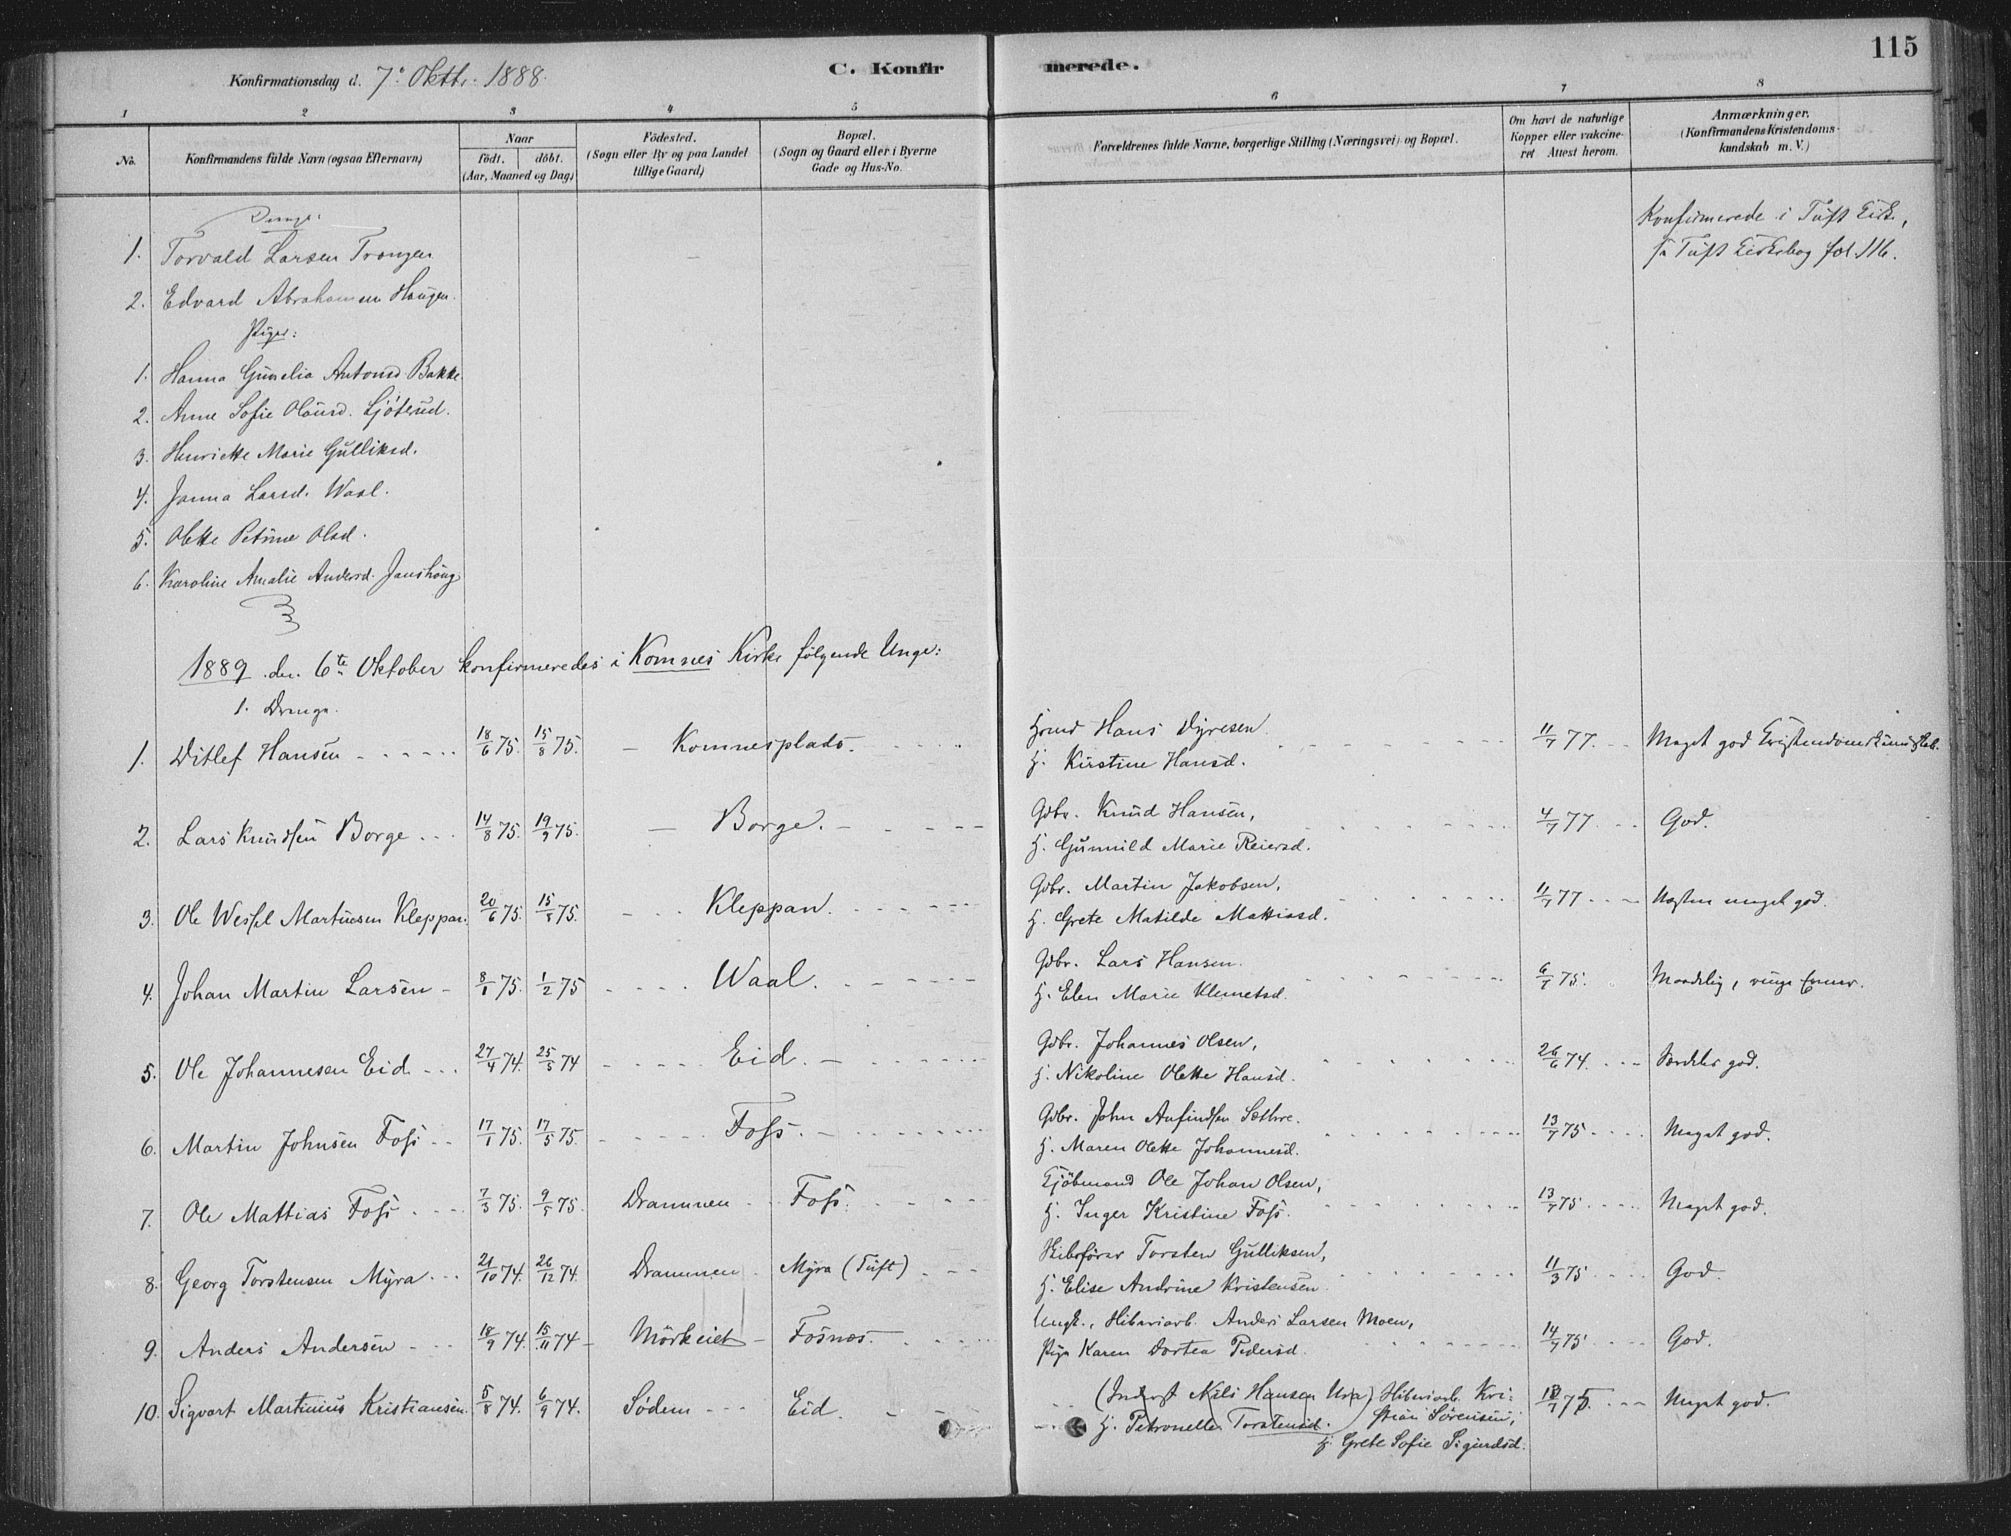 115
Konfirmationsdag d. 7de Oktbr. 1888.
C. Konfirmerede.
1 2 3 4 5 6 7 8
No.
Konfirmandens fulde Navn (ogsaa Efternavn)
Naar
födt. döbt.
(Aar, Maaned og Dag)
Födested.
(Sogn eller By og paa Landet
tillige Gaard)
Bopæl.
(Sogn og Gaard eller i Byerne
Gade og Hus-No.
Forældrenes fulde Navne, borgerlige Stilling (Næringsvei) og Bopæl.
Om havt de naturlige
Kopper eller vakcine-
ret Attest herom.
Anmærkninger.
(Konfirmandens Kristendoms-
kundskab m. V.)
Drenge:
1. Torvald Larsen Trangen
Konfirmerede i Tuft Kirk.,
se Tuft Kirkebog fol. 116.
2. Edvard Abrahamsen Haugen.
Piger:
1. Hanna Gunelia Antonsd. Bakke
2. Anne Sofie Olausd. Ljøterud.
3. Henriette Marie Gulliksd.
4. Janna Larsd. Waal.
5. Olette Petrine Olsd.
6. Karoline Amalie Andersd. Janshaug
1889 den 6te Oktober konfirmeredes i Komnes Kirke følgende Unge:
1. Drenge.
1. Ditlef Hansen 18/6 75. 15/8 75. – Komnesplads. Hmd Hans Dyresen H. Kirstine Hansd. 11/7 77. Meget god Kristendomskundskab.
2. Lars Knudsen Borge 14/8 75. 19/9 75. – Borge. Gdbr. Knud Hansen, H. Gunnild Marie Reiersd. 4/7 77. God.
3. Ole Wessel Martinsen Kleppan. 20/6 75. 15/8 75. Kleppan. Gdbr. Martin Jakobsen, H. Grete Matilde Mattiasd. 11/7 77 Næsten meget god.
4. Johan Martin Larsen 8/1 75. 1/2 75 Waal. Gdbr. Lars Hansen. H. Elen Marie Klemetsd. 6/7 75. Maadelig, ringe Evner.
5. Ole Johannesen Eid 27/4 74. 25/5 74 Eid. Gdbr. Johannes Olsen, H. Nikoline Olette Hansd. 26/6 74. Særdeles god.
6. Martin Johnsen Foss 17/1 75. 17/5 75. Foss. Gdbr. John Anfindsen Sæthre. H. Maren Olette Johannesd. 13/7 75 Meget god.
7. Ole Mattias Foss 7/3 75. 9/5 75. Drammen Foss. Kjöbmand Ole Johan Olsen, H. Inger Kristine Foss. 13/7 75 Meget god.
8. Georg Torstensen Myra 21/10 74. 26/12 74. Drammen Myra (Tuft) Skibsförer Torsten Gulliksen, H. Elise Andrine Kristensen. 11/3 75 God.
9. Anders Andersen 18/9 74. 15/11 74 Mörkeiet Fosnæs. Ungk., Anders Larsen Moen, Pige Karen Dortea Pedersd. 14/7 75 God.
10. Sigvart Martinius Kristiansen. 5/8 74. 6/9 74. Södem Eid. (Inderst Nils Hansen Ura) Kri-
stian Sörensen, H. Petronelle Torstensd. H. Grete Sofie Sigurdsd. 18/7 75. Meget god.